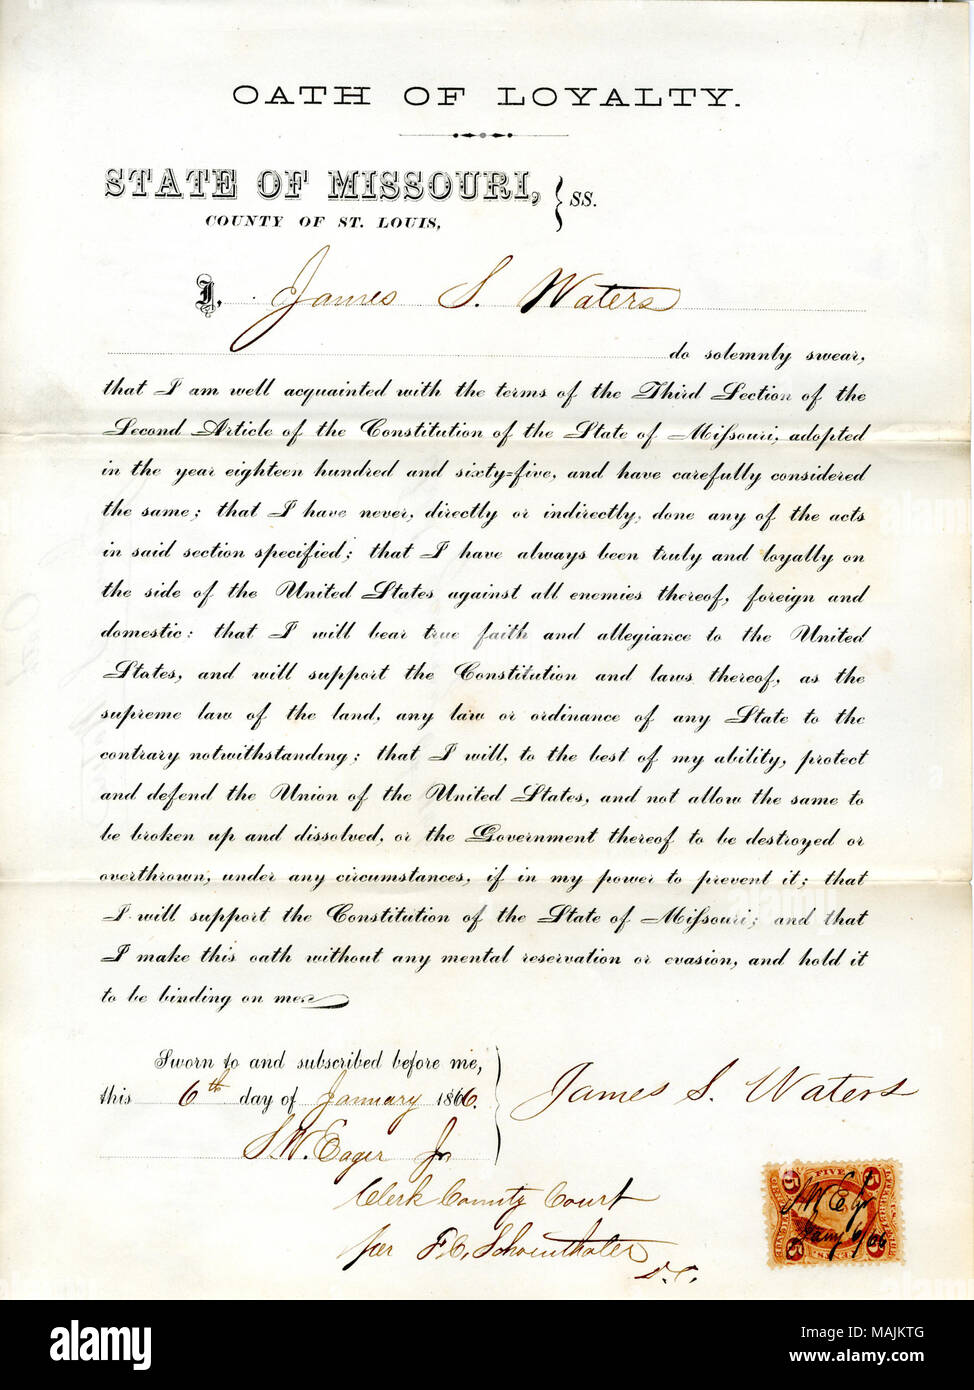 OATH OF LOYALTY.
STATE OF MISSOURI,
COUNTY OF ST. LOUIS,
} SS.
I, James S. Waters
do solemnly swear,
that I am well acquainted with the terms of the Third Section of the
Second Article of the Constitution of the State of Missouri, adopted
in the year eighteen hundred and sixty=five, and have carefully considered
the same; that I have never, directly or indirectly, done any of the acts
in said section specified; that I have always been truly and loyally on
the side of the United States against all enemies thereof, foreign and
domestic: that I will bear true faith and allegiance to the United
States, and will support the Constitution and laws thereof, as the
supreme law of the land, any law or ordinance of any State to the
contrary notwithstanding; that I will, to the best of my ability, protect
and defend the Union of the United States, and not allow the same to
be broken up and dissolved, or the Government thereof to be destroyed or
overthrown, under any circumstances, if in my power to prevent it; that
I will support the Constitution of the State of Missouri; and that
I make this oath without any mental reservation or evasion, and hold it
to be binding on me.
Sworn to and subscribed before me,
this 6th day of January 1866.
James S. Waters
S. W. Eager Jr
Clerk County Court
per F. C. Schoenthaler
D. C.
FIVE
5 5
S W E Jr
Jany 6/66
5 CENTS 5
alamy
Image ID: MAJKTG
www.alamy.com